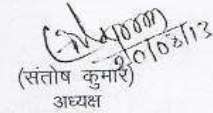 20/03/13
(संतोष कुमार)
अध्यक्ष